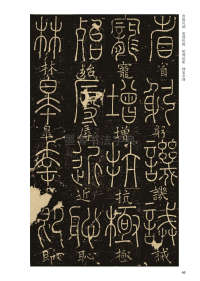 省躬譏誡
寵增抗極
殆辱近恥
林皋幸即